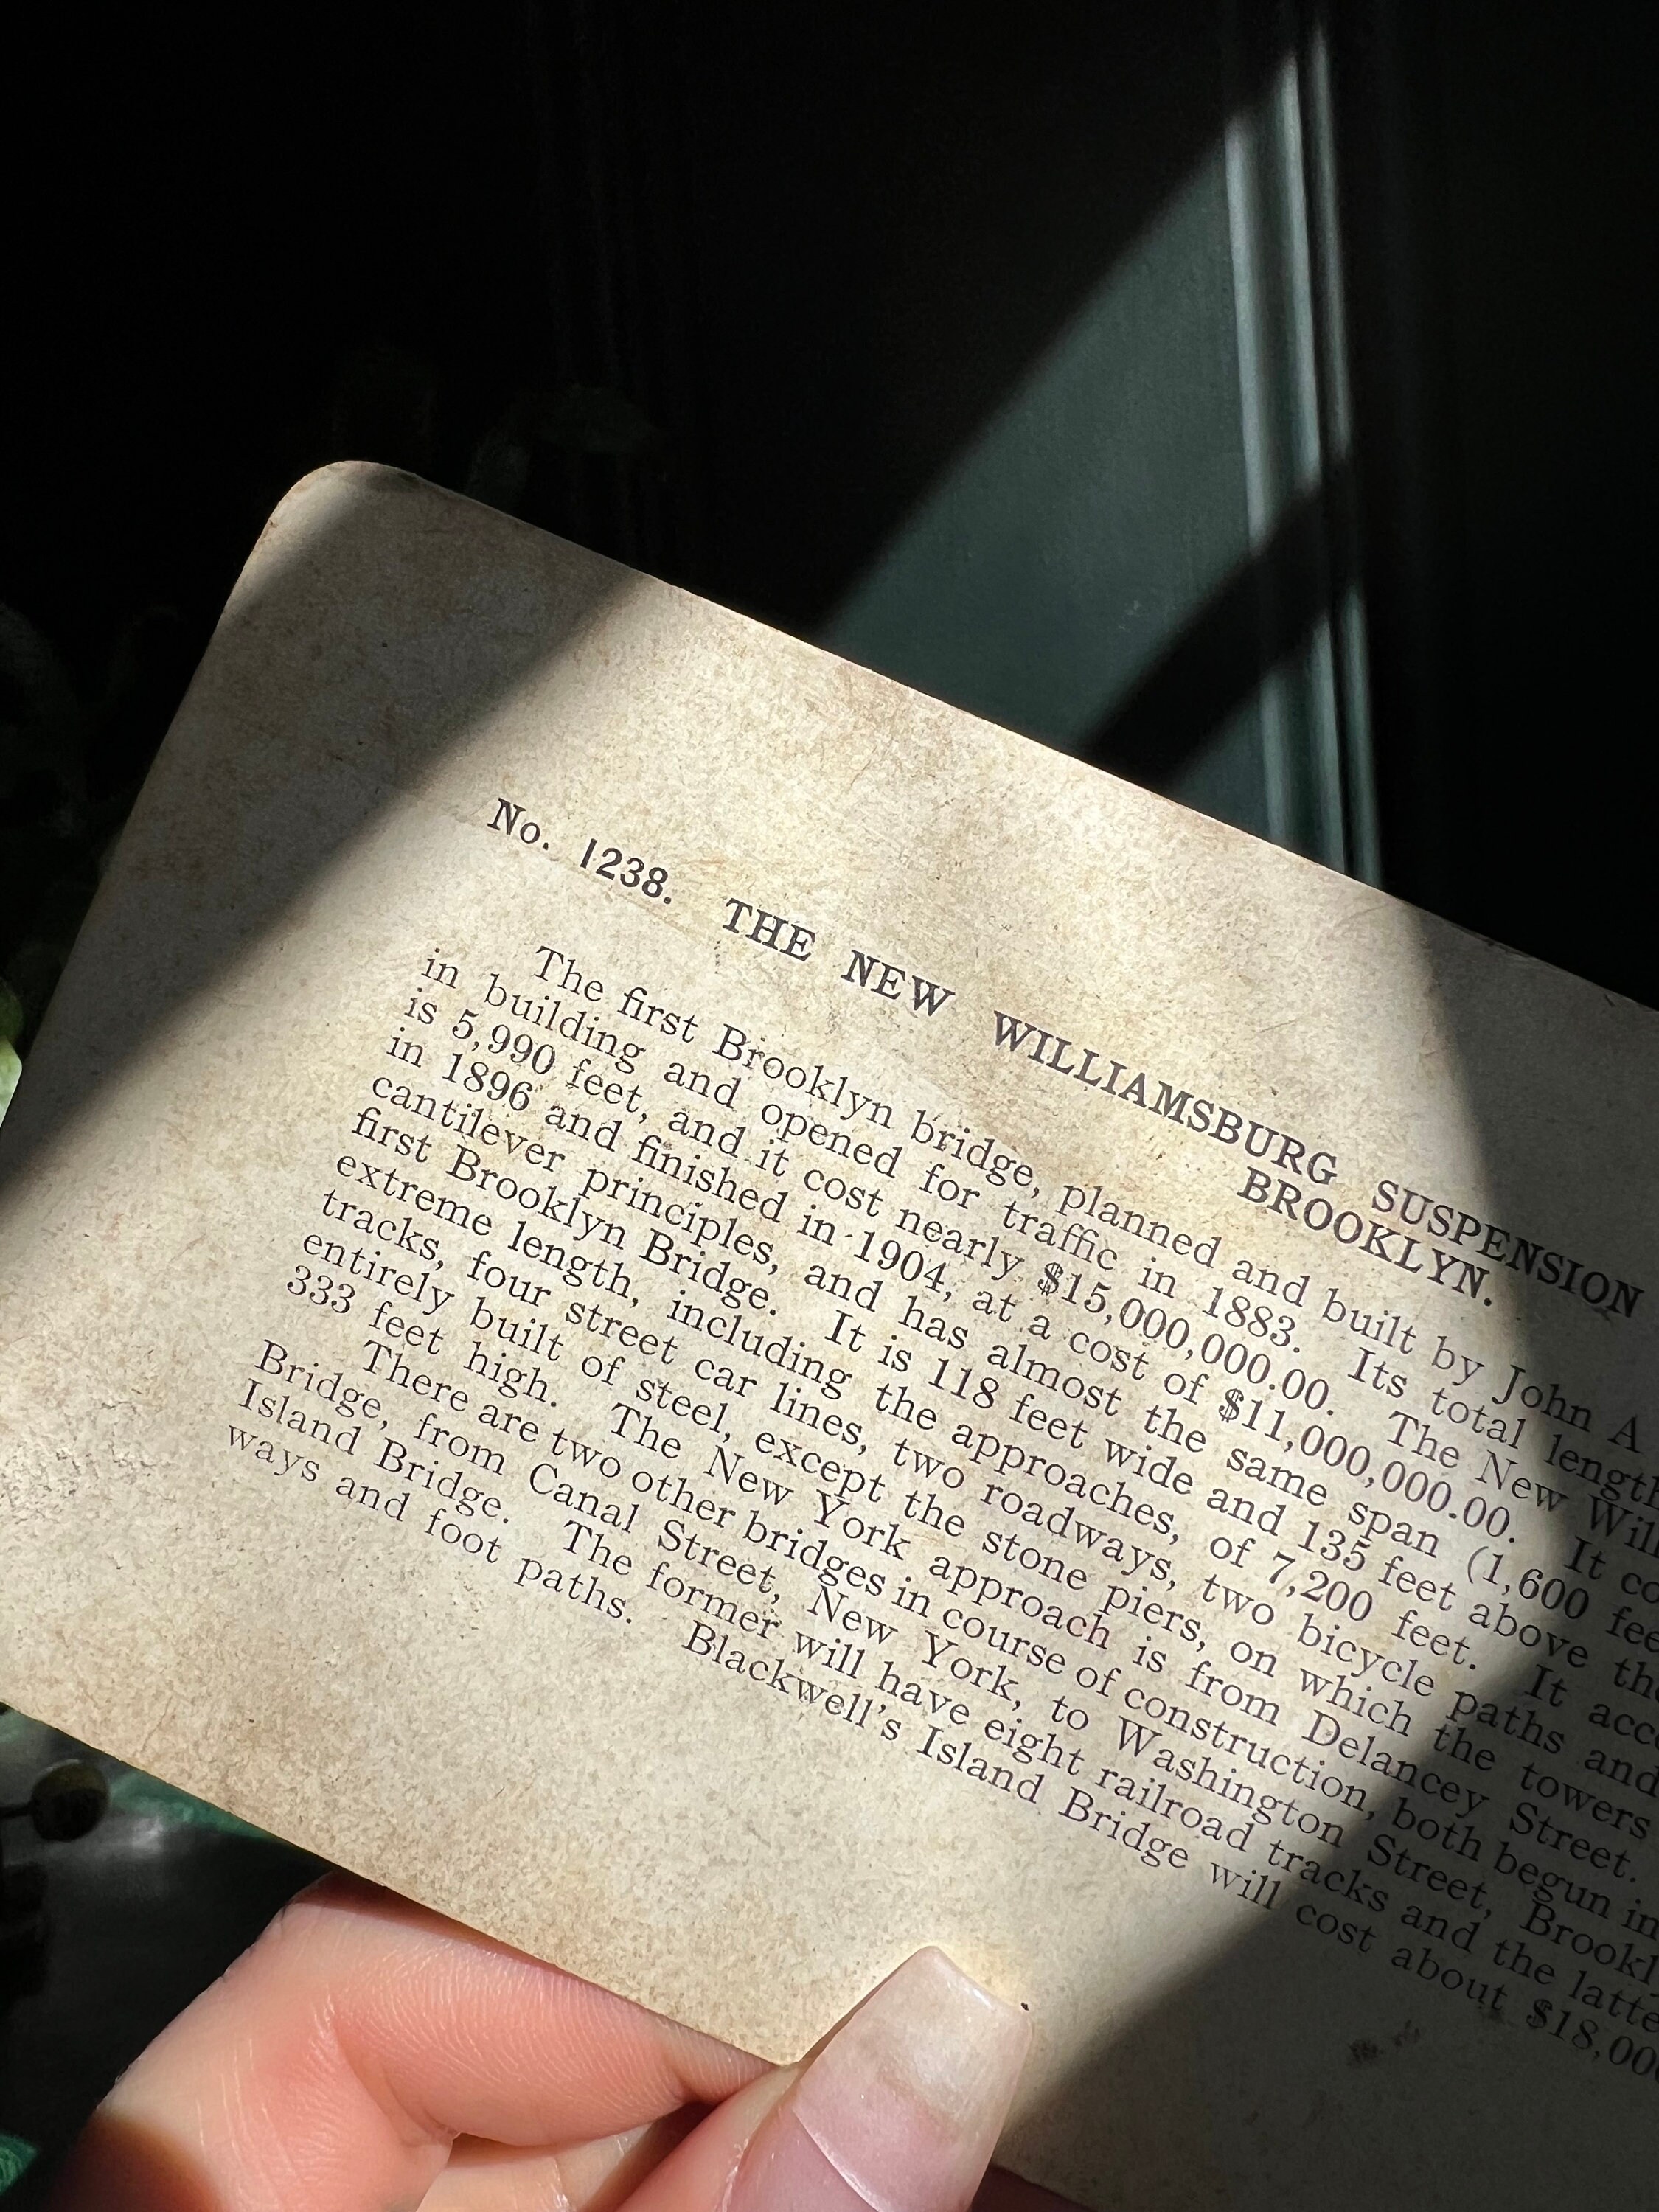 No. 1238. THE NEW WILLIAMSBURG SUSPENSION
BROOKLYN.
The first Brooklyn bridge, planned and built by John A
in building and opened for traffic in 1883. Its total length
is 5,990 feet, and it cost nearly $15,000,000.00. The New
in 1896 and finished in 1904, at a cost of $11,000,000.00. It
cantilever principles, and has almost the same span (1,600
first Brooklyn Bridge. It is 118 feet wide and 135 feet above
extreme length, including the approaches, of 7,200 feet. It
tracks, four street car lines, two roadways, two bicycle paths and
entirely built of steel, except the stone piers, on which the towers
333 feet high. The New York approach is from Delancey Street.
There are two other bridges in course of construction, both begun in
Bridge, from Canal Street, New York, to Washington Street,
Island Bridge. The former will have eight railroad tracks and the
ways and foot paths. Blackwell's Island Bridge will cost about